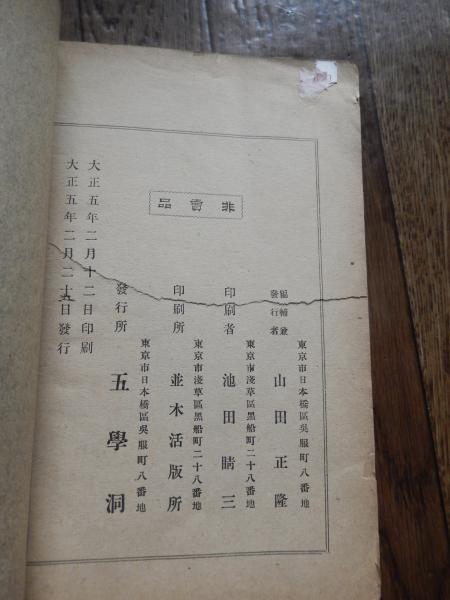 非賣品
大正五年二月十二日印刷
大正五年二月二十五日發行
東京市日本橋區吳服町八番地
編輯兼
發行者
山田正隆
東京市淺草區黑船町二十八番地
印刷者
池田晴三
東京市淺草區黑船町二十八番地
印刷所
並木活版所
東京市日本橋區吳服町八番地
發行所
五學洞